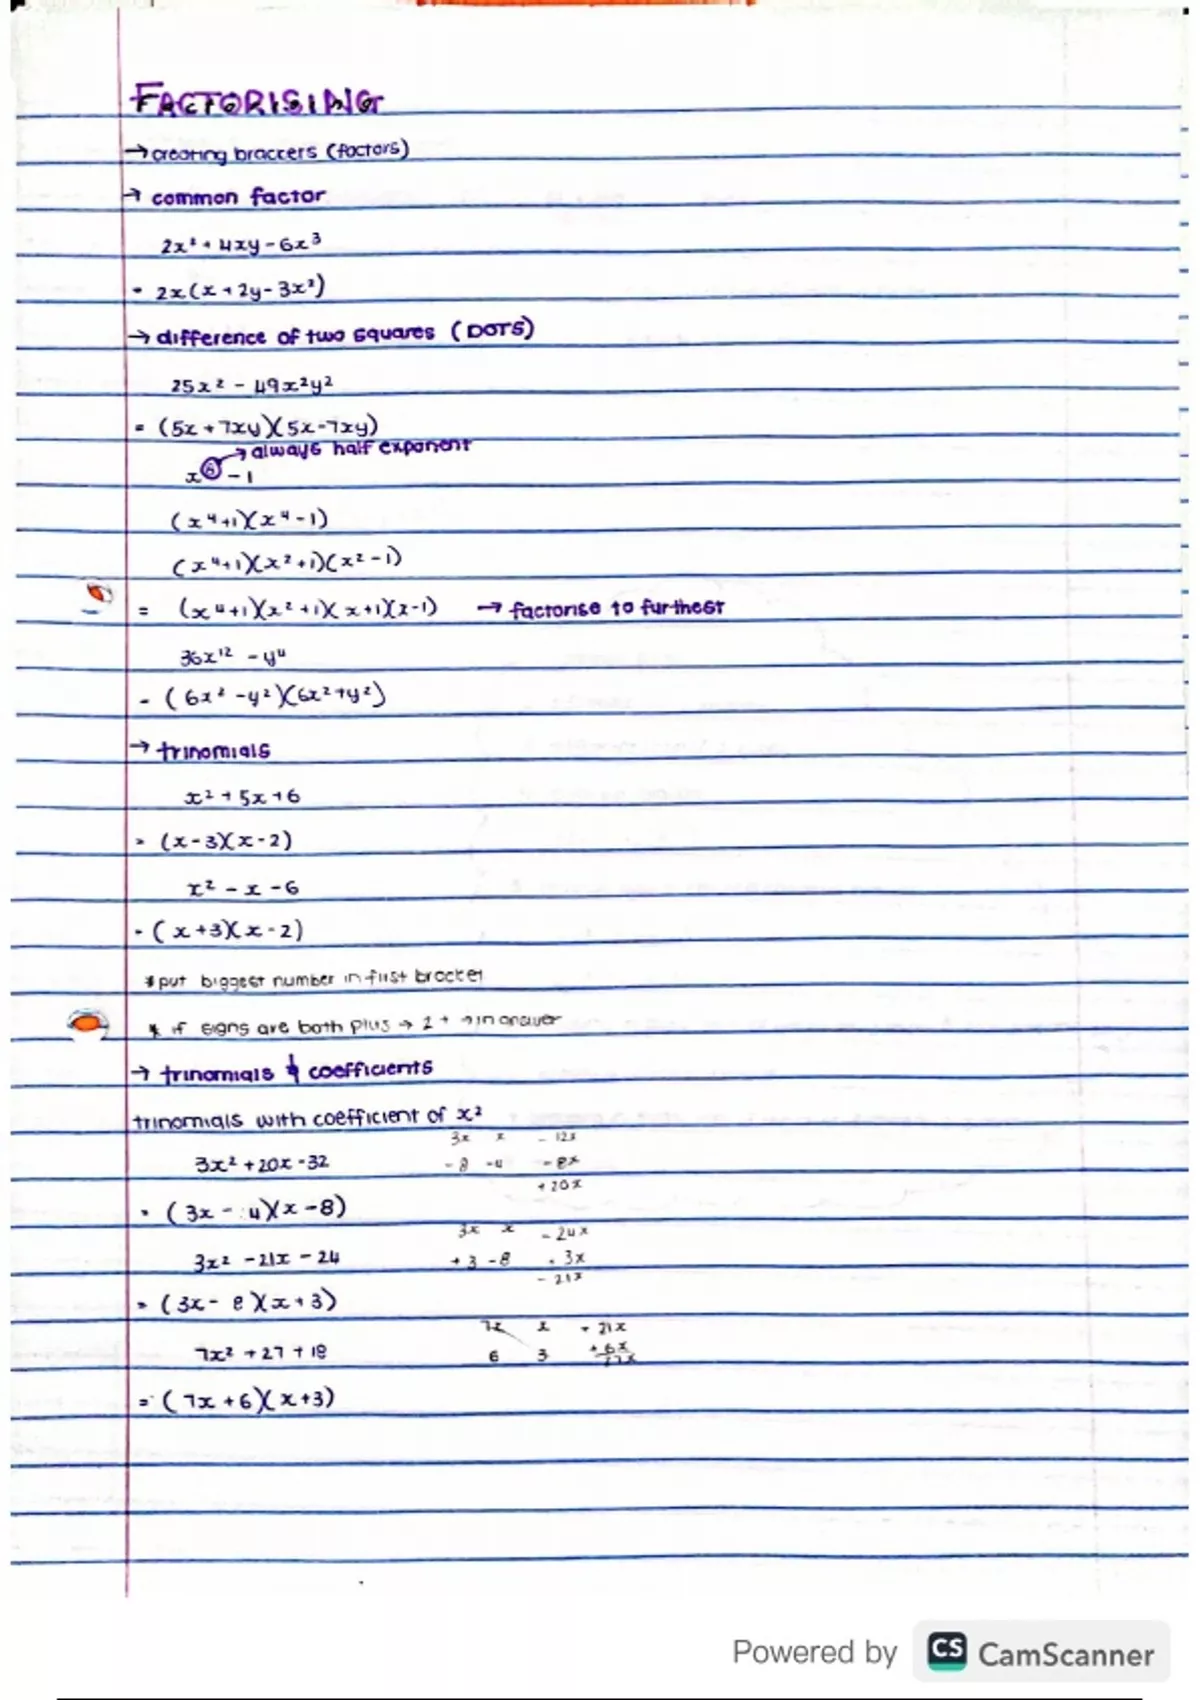 FACTORISING
→ creating braccers (factors)
→ common factor
2x² + 4xy - 6x³
= 2x(x + 2y - 3x²)
→ difference of two squares (DOTS)
25x² - 49x²y²
= (5x + 7xy)(5x - 7xy)
→ always half exponent
x⁸ - 1
(x⁴+1)(x⁴-1)
(x⁴+1)(x²+1)(x²-1)
= (x⁴+1)(x²+1)(x+1)(x-1) → factorise to furthest
36x¹² - y⁴
= (6x² - y²)(6x² + y²)
→ trinomials
x² + 5x + 6
= (x-3)(x-2)
x² - x - 6
= (x+3)(x-2)
* put biggest number in first bracket
* if signs are both plus → 2 + → in answer
→ trinomials & coefficients
trinomials with coefficient of x²
3x x - 12x
3x² + 20x - 32 - 8 -4 - 8x
+ 20x
= (3x - 4)(x - 8)
3x x - 24x
3x² - 21x - 24 + 3 - 8 + 3x
- 21x
= (3x - 8)(x + 3)
7x x + 21x
7x² + 27 + 18 6 3 + 6x
27x
= (7x + 6)(x + 3)
Powered by CS CamScanner